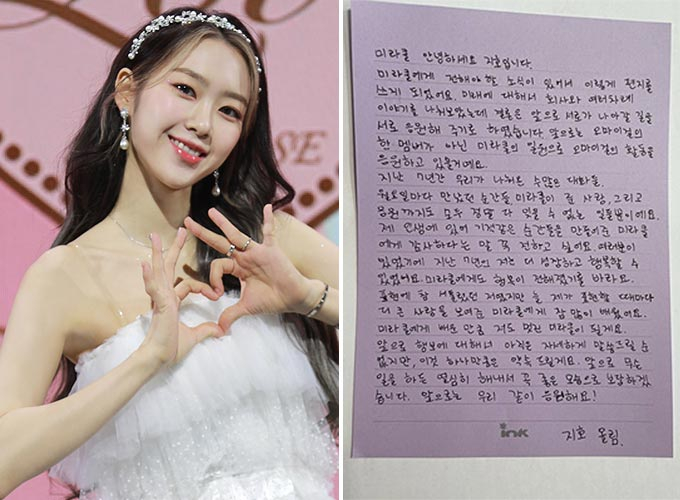 SE
미라클 안녕하세요 지호입니다.
미라클에게 전해야 할 소식이 있어서 이렇게 편지를
쓰게 되었어요. 미래에 대해서 회사와 여러차례
이야기를 나눠보았는데 결론은 앞으로 서로가 나아갈 길을
서로 응원해 주기로 하였습니다. 앞으로는 오마이걸의
한 멤버가 아닌 미라클의 일원으로 오마이걸의 활동을
응원하고 있을거예요.
지난 7년간 우리가 나눠온 수많의 대화들.
월요일마다 만났던 순간들 미라클이 준 사랑, 그리고
응원까지도 모두 정말 다 잊을 수 없는 일들뿐이에요.
제 인생에 있어 기적같은 순간들을 만들어준 미라클
에게 감사하다는 말 꼭 전하고 싶어요. 여러분이
있었기에 지난 7년의 저는 더 성장하고 행복할 수
있었어요. 미라클에게도 행복이 전해졌기를 바라요.
표현에 참 서툴렀던 저였지만 늘 제가 표현할 때마다
더 큰 사랑을 보여준 미라클에게 참 많이 배웠어요.
미라클에게 배운 만큼 저도 멋진 미라클이 될게요.
앞으로 행보에 대해서 아직은 자세하게 말씀드릴 순
없지만, 이것 하나만큼은 약속드릴게요. 앞으로 무슨
일을 하든 열심히 해내서 꼭 좋은 모습으로 보답하겠
습니다. 앞으로는 우리 같이 응원해요!
ink
지호 올림.